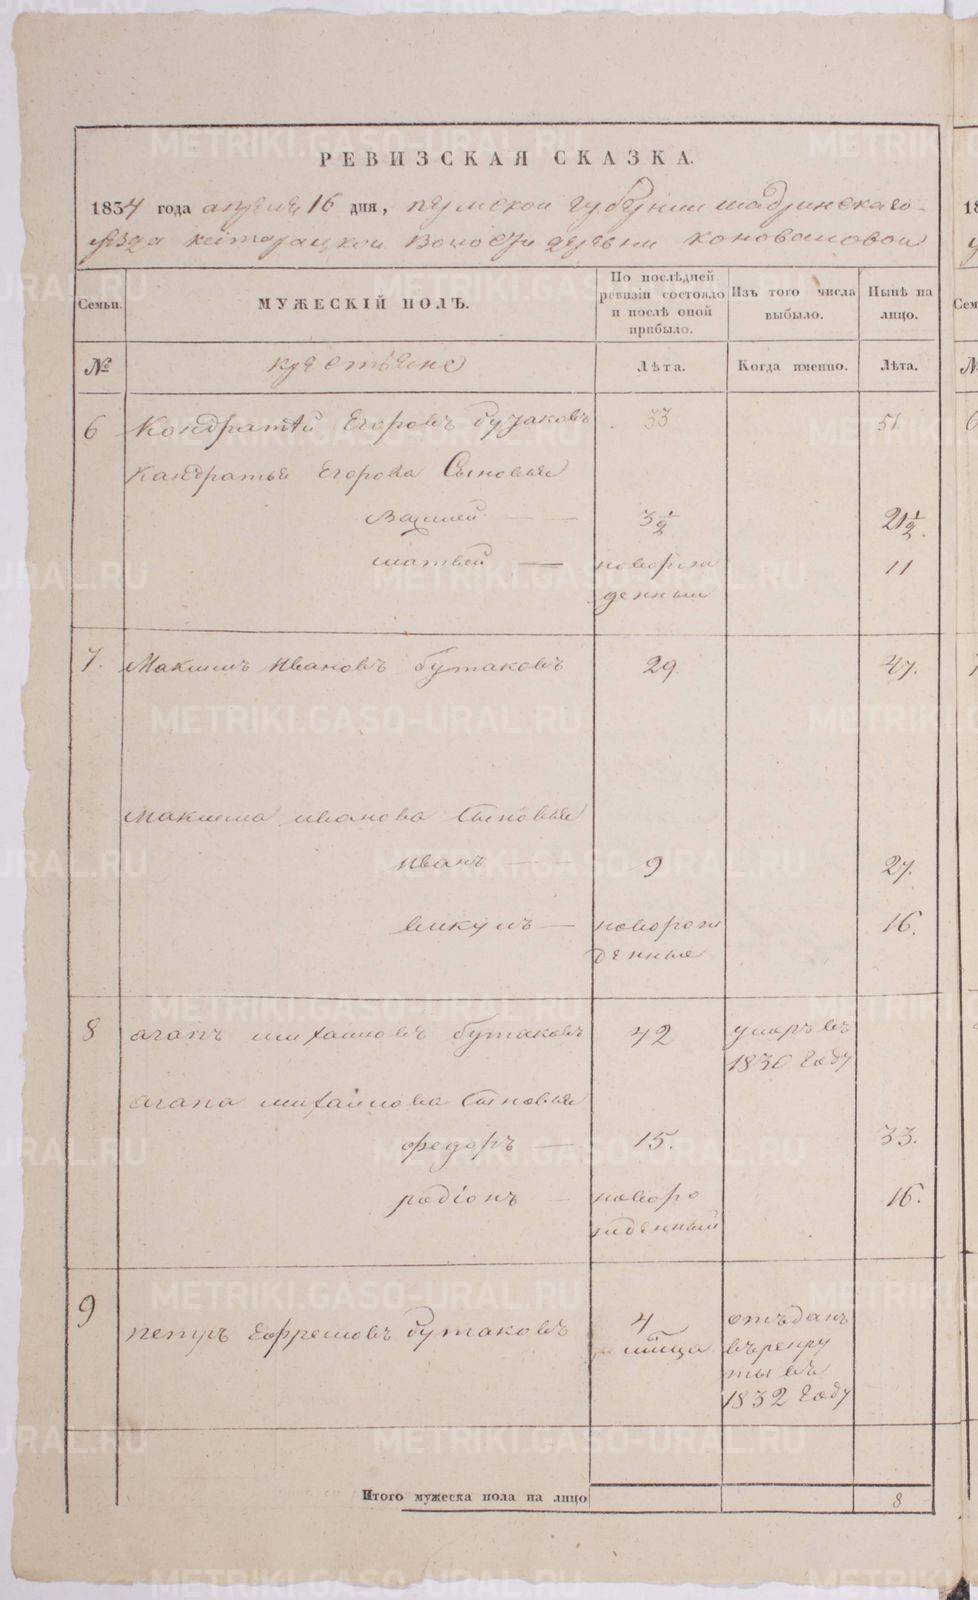 РЕВИЗСКАЯ СКАЗКА.
1834 года апреля 16 дня, пермской губернии шадринскаго
уезда волости деревни коноваловой
Семьи. МУЖЕСКІЙ ПОЛЪ. По послѣдней ревизіи состояло и послѣ оной прибыло. Изъ того числа выбыло. Нынѣ на лицо.
№ крестьяне Лѣта. Когда именно. Лѣта.
6 Кондратей Егоровъ бутаковъ 33 51
Кандратья Егорова Сыновья
Васи­лей 3 1/2 21 1/2.
матвей — новорож 11
денный
7. Максимъ Ивановъ бутаковъ 29. 47.
максима иванова Сыновья
иванъ — 9 27.
викулъ — новорож 16.
денные
8 агапъ михаиловъ бутаковъ 42 умръ въ
1830 году
агапа михаилова Сыновья
федоръ — 15. 33.
родіонъ — новоро 16.
жденный
9 петръ Ефремовъ бутаковъ 4 отъданъ
мѣсца въ рекру
ты въ
1832 году
Итого мужеска пола на лицо 8
METRIKI.GASO-URAL.RU